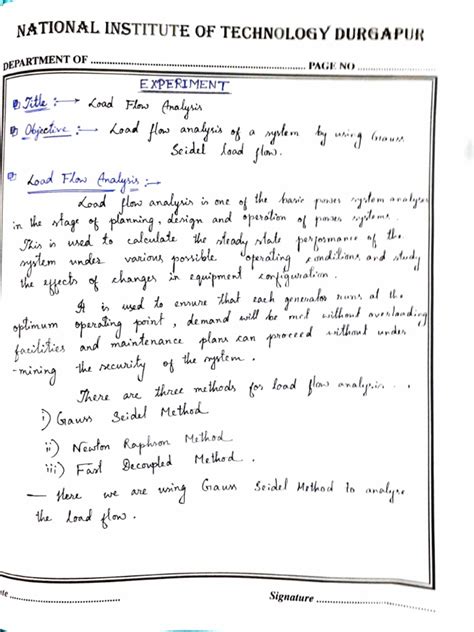 NATIONAL INSTITUTE OF TECHNOLOGY DURGAPUR
DEPARTMENT OF ........................ PAGE NO ....................
EXPERIMENT
Title :→ Load Flow Analysis
Objective :→ Load flow analysis of a system by using Gauss
Seidel load flow.
Load Flow Analysis :→
Load flow analysis is one of the basic power system analysis
in the stage of planning, design and operation of power systems.
This is used to calculate the steady state performance of the
system under various possible operating conditions and study
the effects of changes in equipment configuration.
It is used to ensure that each generator runs at the
optimum operating point, demand will be met without overloading
facilities and maintenance plans can proceed without under
-mining the security of the system.
There are three methods for load flow analysis...
i) Gauss Seidel Method
ii) Newton Raphson Method
iii) Fast Decoupled Method.
— Here we are using Gauss Seidel Method to analyse
the load flow.
Signature ........................